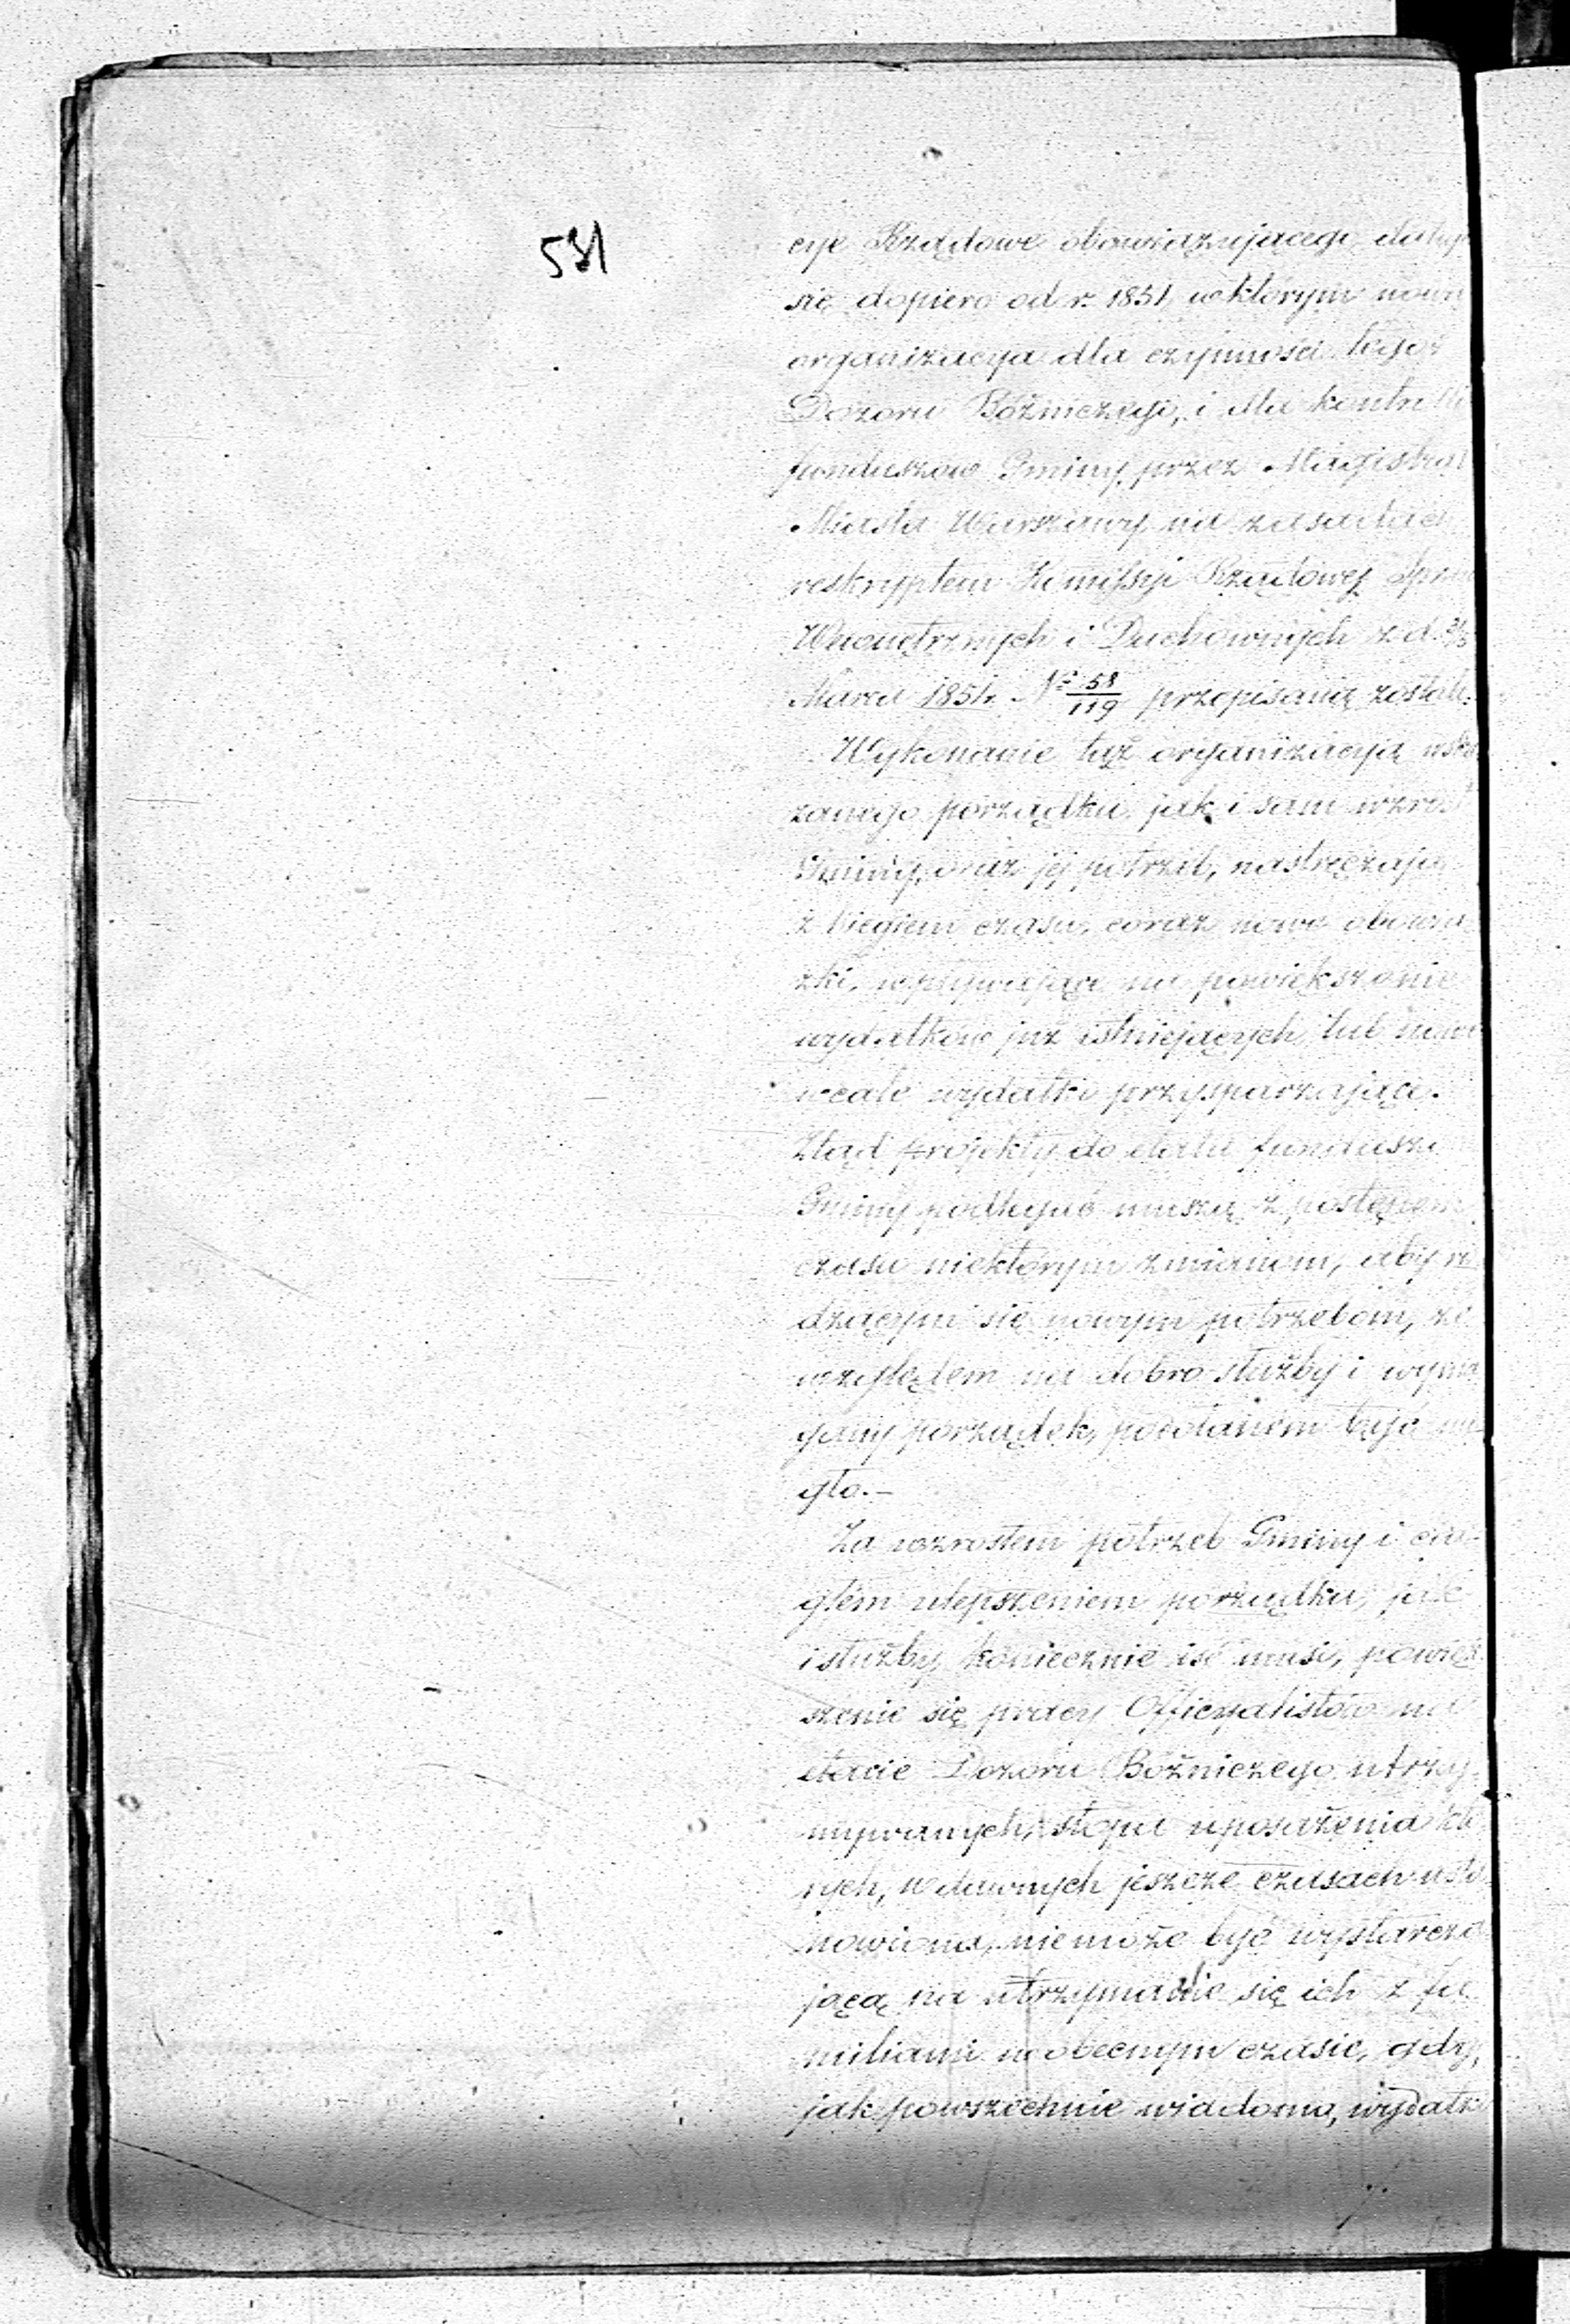 531
cyje Rządowe obowiązującego, datuje
się dopiero od r. 1851, w którym nowa
organizacya dla czynności tegoż
Dozoru Bóżniczego, i dla kontrolli
funduszów Gminy przez Magistrat
Miasta Warszawy, na zasadach
reskryptem Kommissyi Rządowej Spraw
Wewnętrznych i Duchownych z d.
Marca 1851 r. № 58/119 przepisaną została.
Wykonanie tąż organizacyą wska
zanego porządku, jak i sam wzrost
Gminy, oraz jej potrzeb, nastręczają
z biegiem czasu, coraz nowe obowią
zki, wpływające na powiększenie
wydatków już istniejących, lub nowe
wcale wydatki przysparzające.
Ztąd projekty do etatu funduszu
Gminy podlegać muszą z postępem
czasu niektórym zmianom, aby ro
dzącym się nowym potrzebom, ze
względem na dobro służby i wyma
gany porządek, podołanem być mo
gło.—
Za wzrostem potrzeb Gminy i cią-
głem ulepszeniem porządku, jak
i służby, koniecznie iść musi, powięk
szenie się pracy Officyalistów na
etacie Dozoru Bóżniczego utrzy-
mywanych, stopa uposażenia
rych, w dawnych jeszcze czasach usta
nowiona, niemoże być wystarcza
jącą na utrzymanie się ich z fa
miliami w obecnym czasie, gdy,
jak powszechnie wiadomo, wydatki